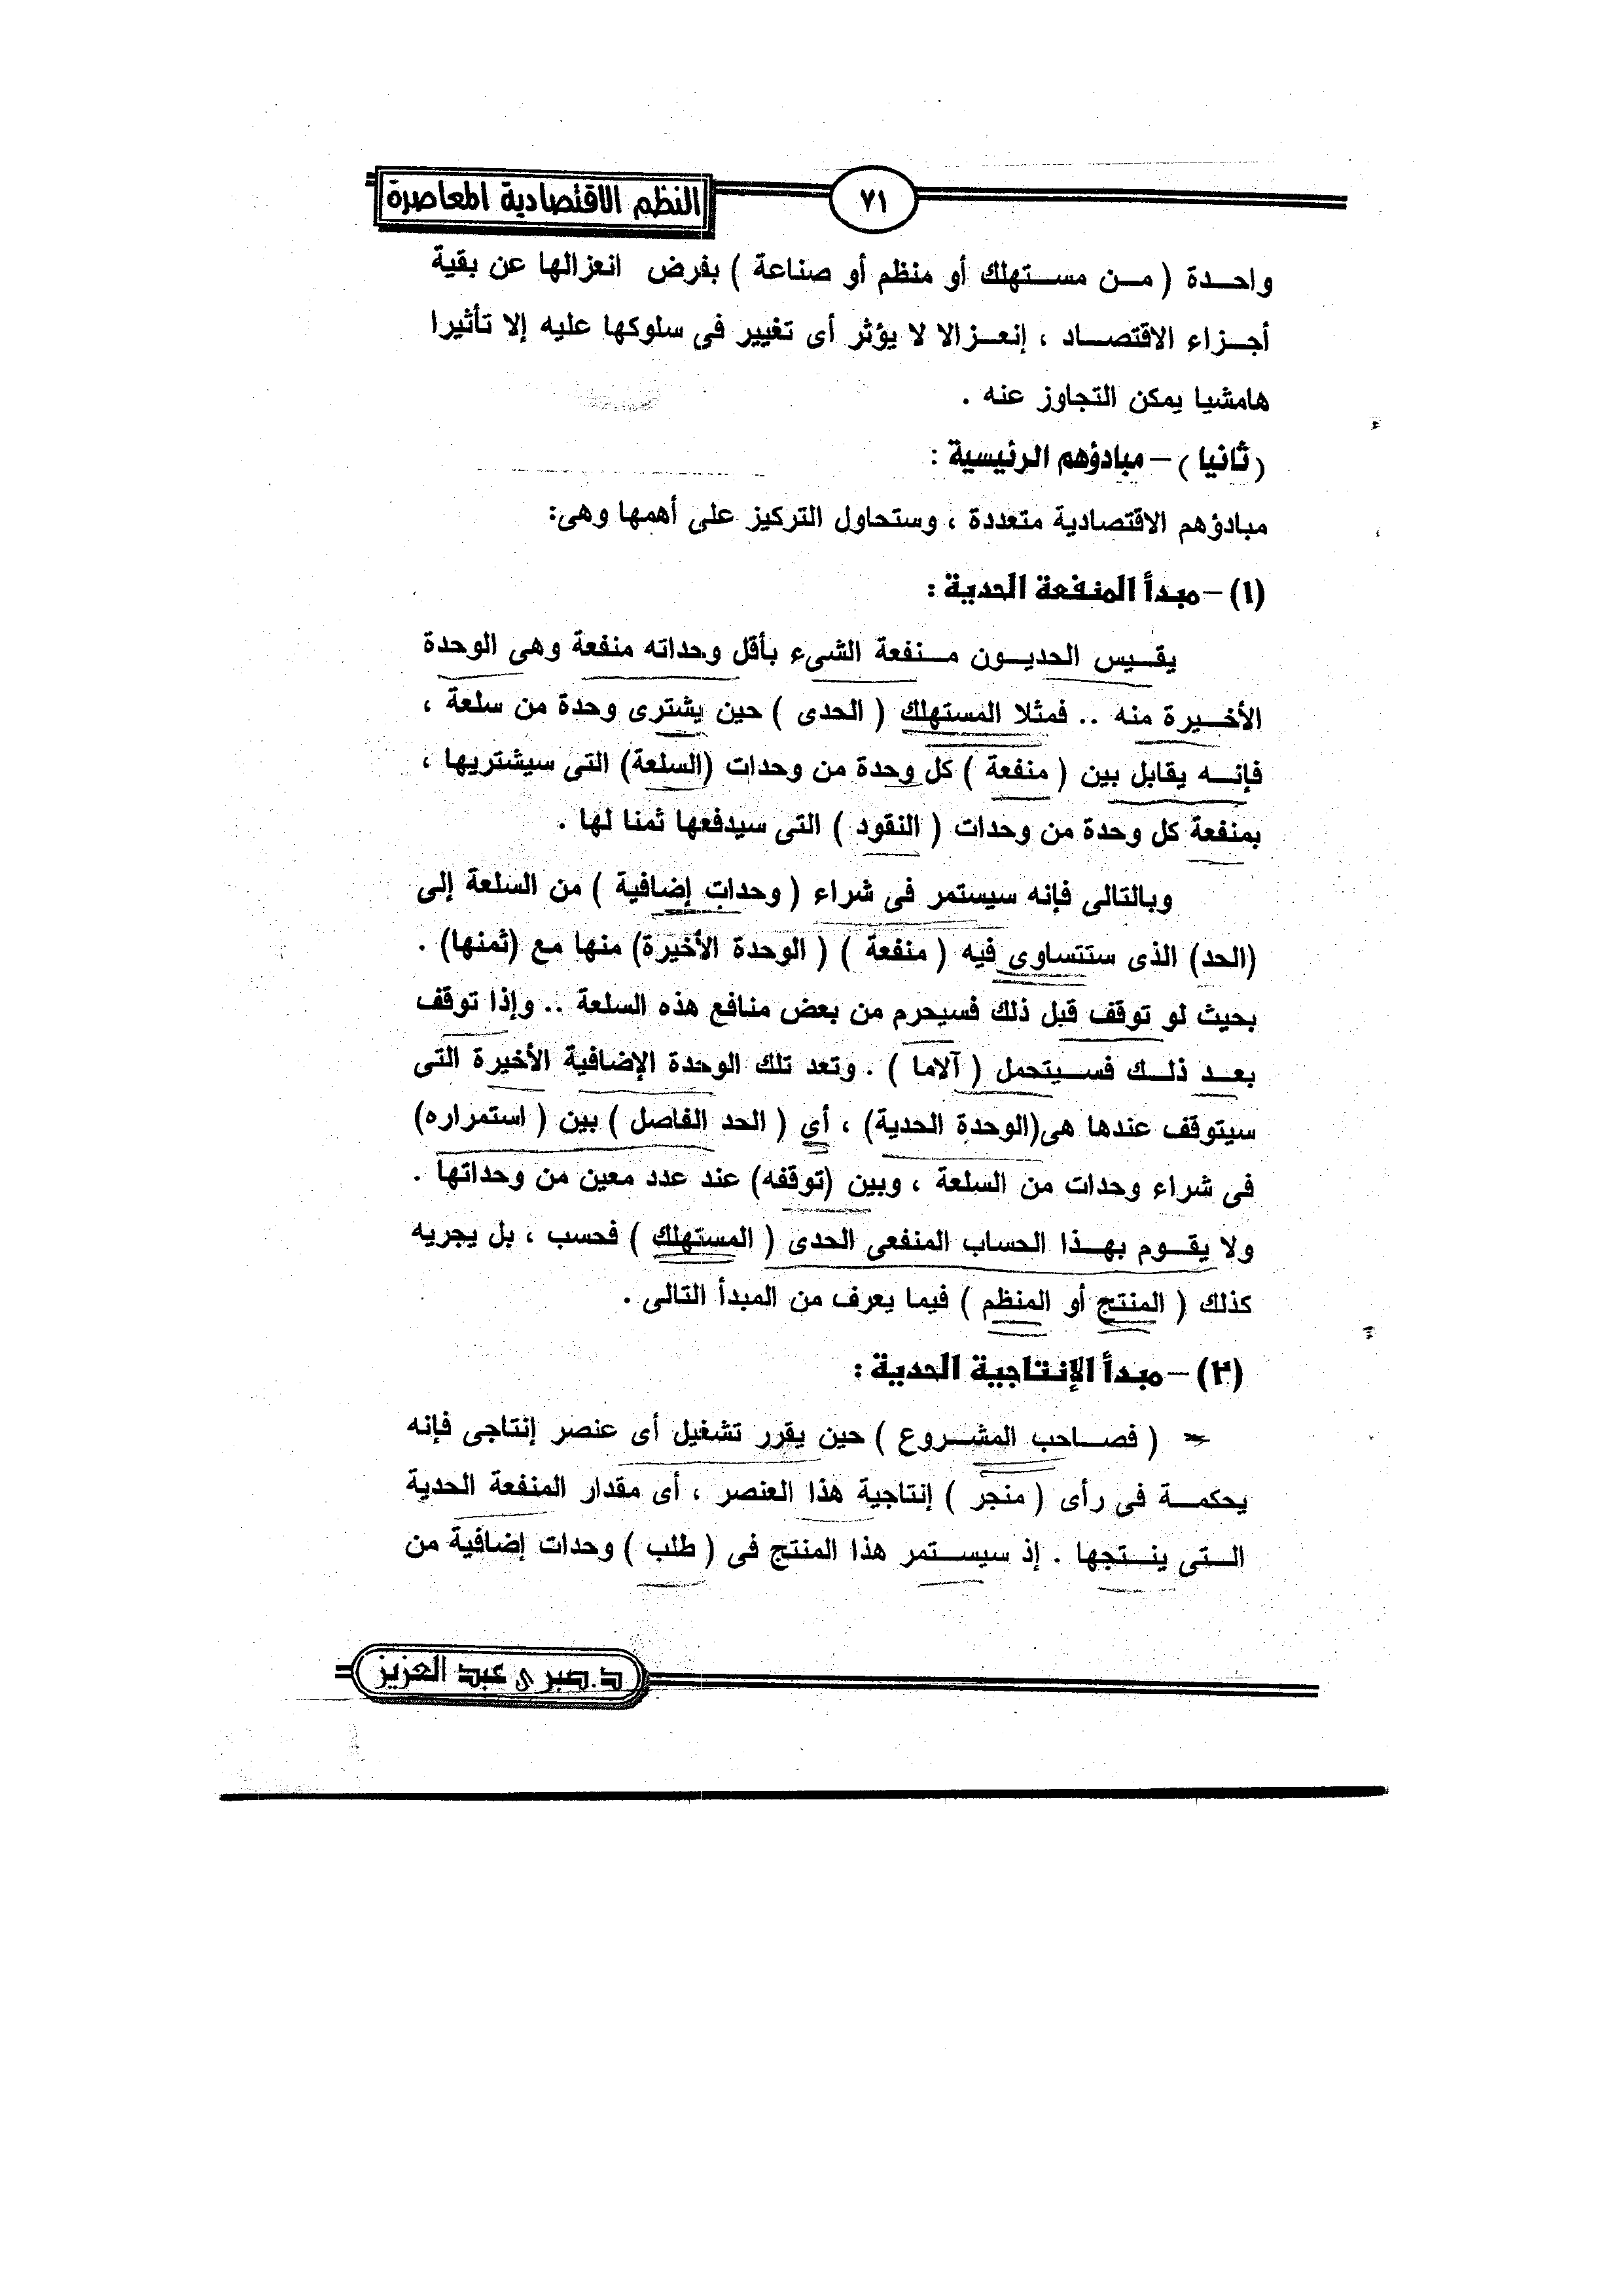 النظم الاقتصادية المعاصرة
٧١
واحدة ( من مستهلك أو منظم أو صناعة ) بفرض انعزالها عن بقية
أجزاء الاقتصاد ، إنعزالا لا يؤثر أى تغيير فى سلوكها عليه إلا تأثيرا
هامشيا يمكن التجاوز عنه .
( ثانيا ) – مبادؤهم الرئيسية :
مبادؤهم الاقتصادية متعددة ، وستحاول التركيز على أهمها وهى:
(١) – مبدأ المنفعة الحدية :
يقيس الحديون منفعة الشىء بأقل وحداته منفعة وهى الوحدة
الأخيرة منه .. فمثلا المستهلك ( الحدى ) حين يشترى وحدة من سلعة ،
فإنه يقابل بين ( منفعة ) كل وحدة من وحدات (السلعة) التى سيشتريها ،
بمنفعة كل وحدة من وحدات ( النقود ) التى سيدفعها ثمنا لها .
وبالتالى فإنه سيستمر فى شراء ( وحدات إضافية ) من السلعة إلى
(الحد) الذى ستتساوى فيه ( منفعة ) ( الوحدة الأخيرة) منها مع (ثمنها) .
بحيث لو توقف قبل ذلك فسيحرم من بعض منافع هذه السلعة .. وإذا توقف
بعد ذلك فسيتحمل ( آلاما ) . وتعد تلك الوحدة الإضافية الأخيرة التى
سيتوقف عندها هى(الوحدة الحدية) ، أي ( الحد الفاصل ) بين ( استمراره)
فى شراء وحدات من السلعة ، وبين (توقفه) عند عدد معين من وحداتها .
ولا يقوم بهذا الحساب المنفعى الحدى ( المستهلك ) فحسب ، بل يجريه
كذلك ( المنتج أو المنظم ) فيما يعرف من المبدأ التالى .
(٢) – مبدأ الإنتاجية الحدية :
( فصاحب المشروع ) حين يقرر تشغيل أى عنصر إنتاجى فإنه
يحكمة فى رأى ( منجر ) إنتاجية هذا العنصر ، أى مقدار المنفعة الحدية
التى ينتجها . إذ سيستمر هذا المنتج فى ( طلب ) وحدات إضافية من
د.صبرى عبد العزيز